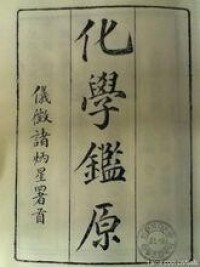 化學鑑原
儀徵諸炳星署首